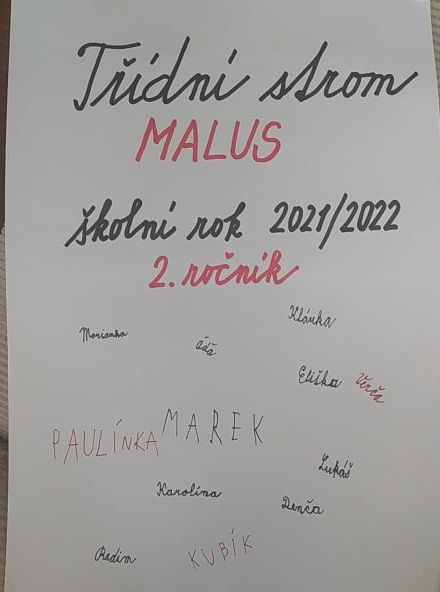 Třídní strom
MALUS
školní rok 2021/2022
2. ročník
Klárka
Marianka
Áďa
Eliška
Verča
PAULÍNKA
MAREK
Lukáš
Karolína
Denča
Radim
KUBÍK